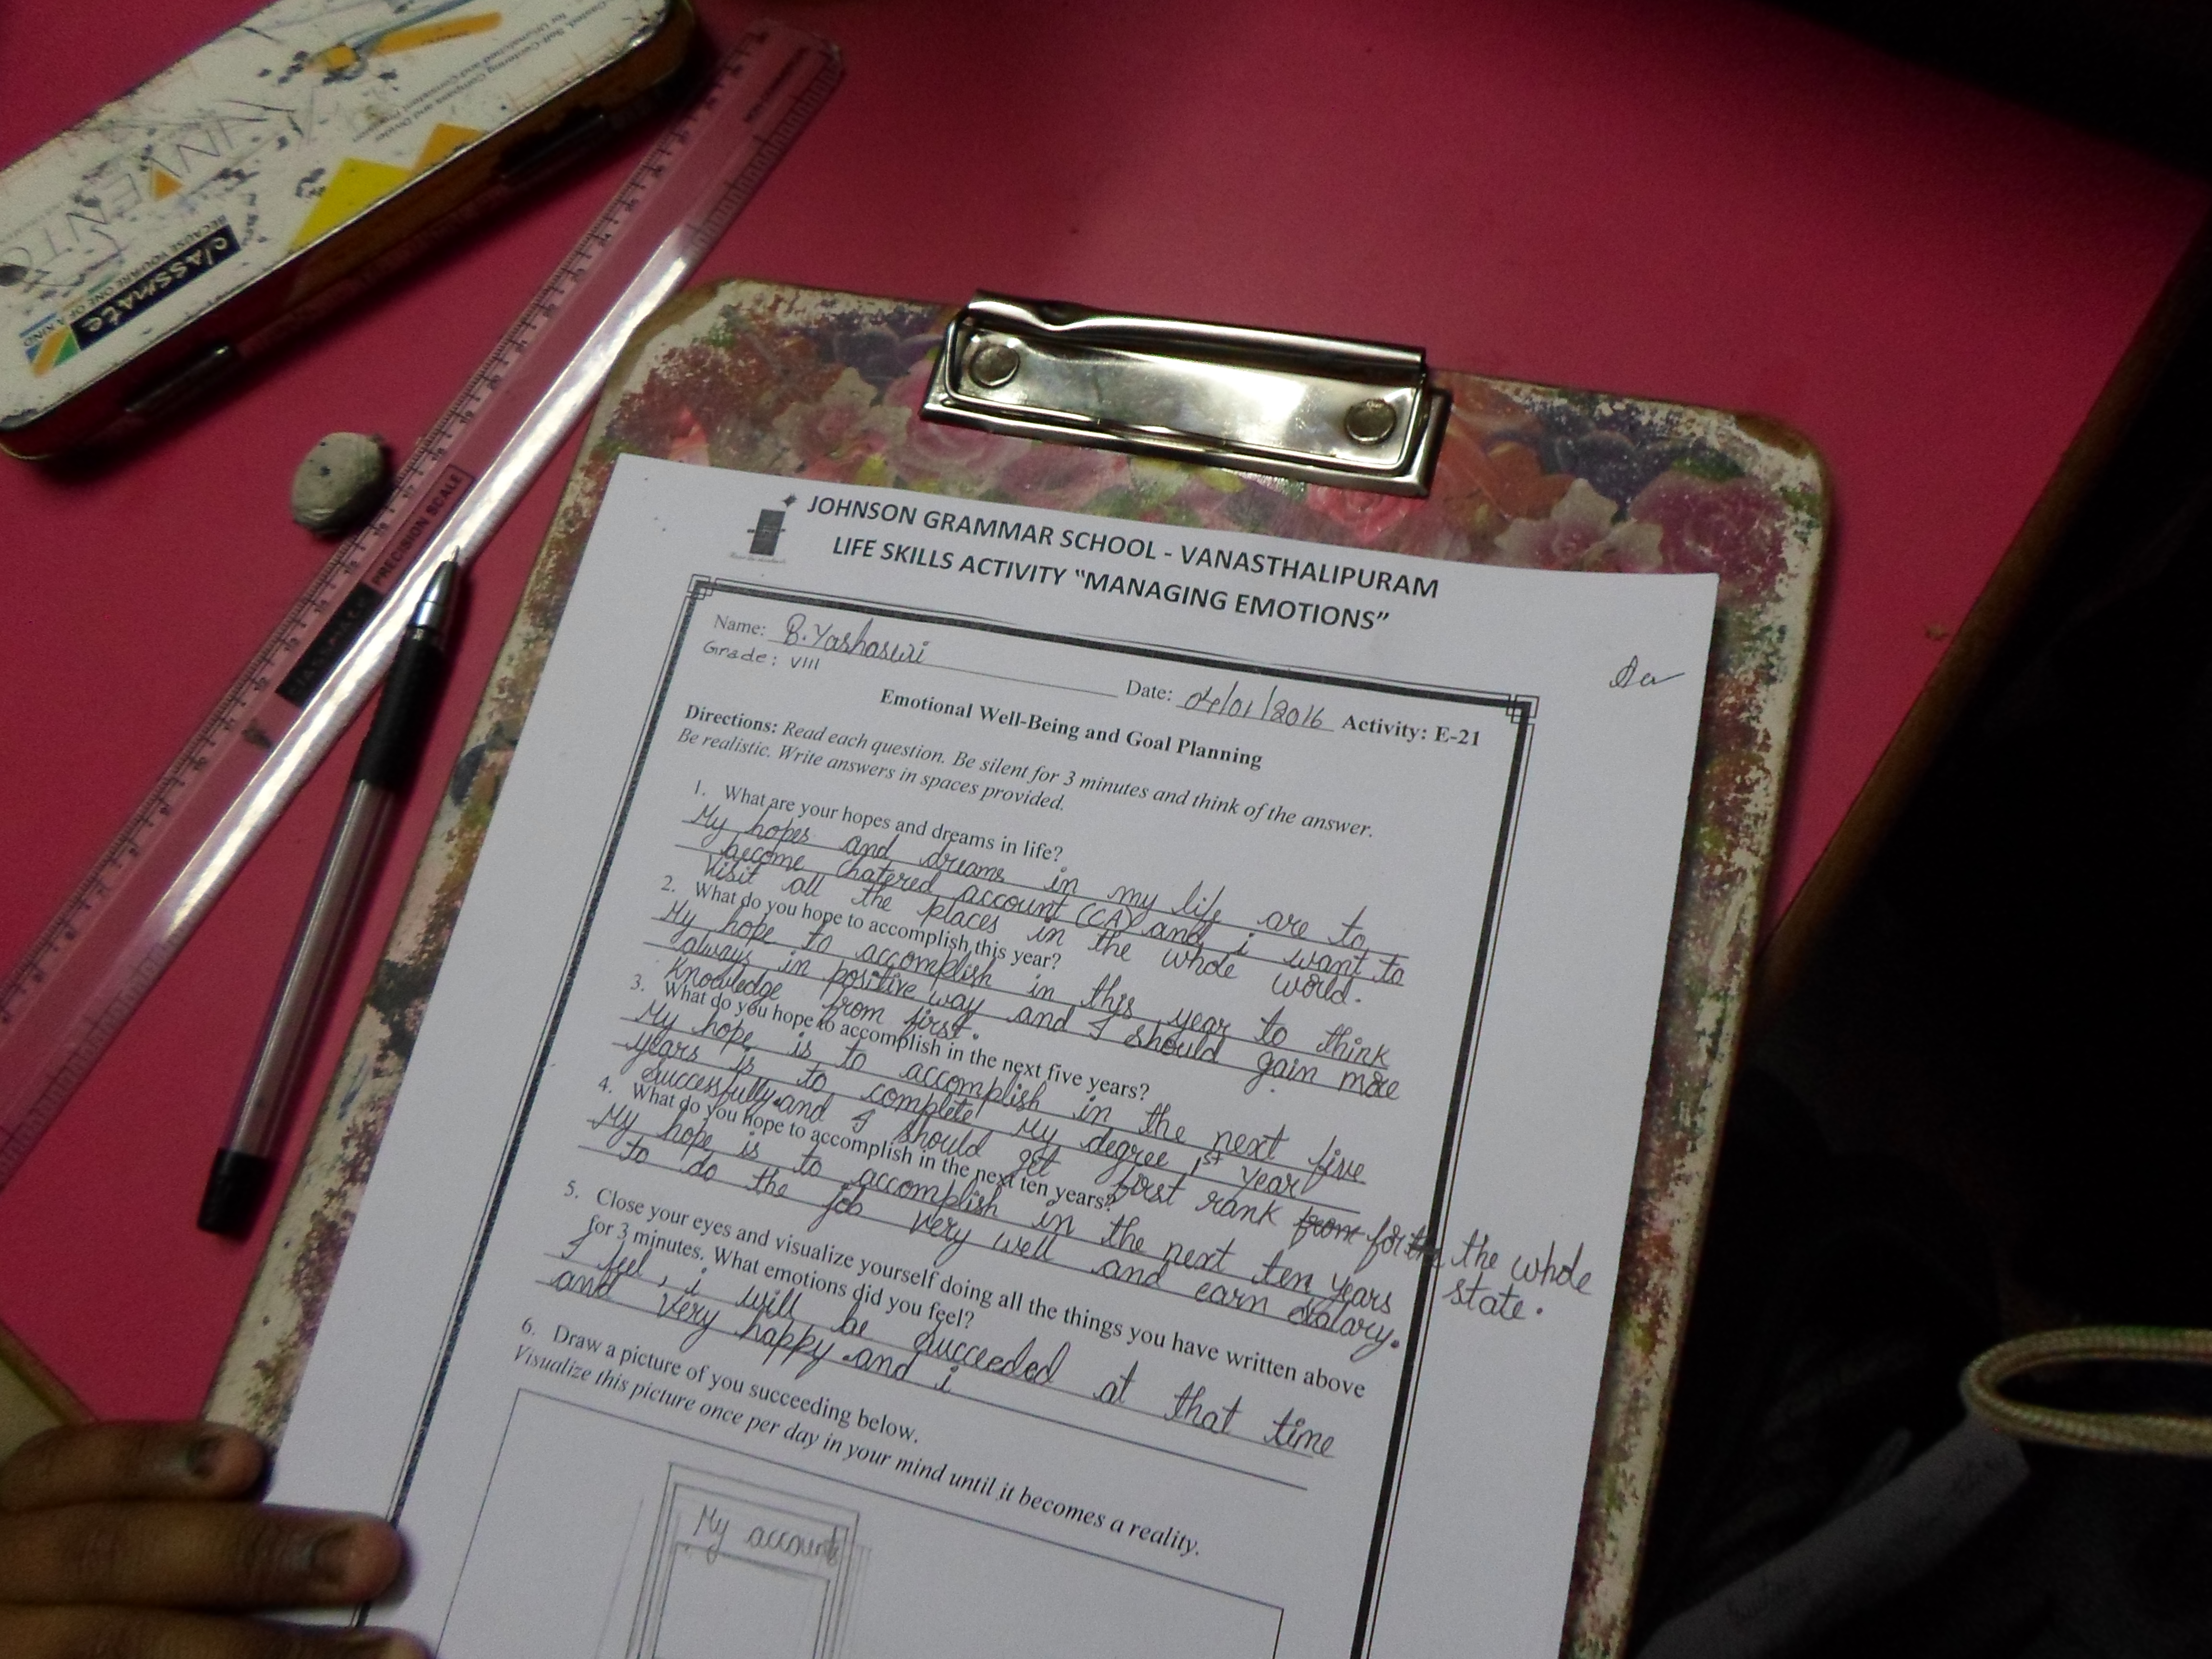 Self-Centering Compass and Divider
for Unmatched and Consistent
INVENTO
classmate
BECAUSE YOU ARE ONE OF A KIND
PRECISION SCALE
JOHNSON GRAMMAR SCHOOL - VANASTHALIPURAM
LIFE SKILLS ACTIVITY "MANAGING EMOTIONS"
Name: B. Yashaswi
Date: 04/01/2016 Activity: E-21
Grade: VIII
Emotional Well-Being and Goal Planning
Directions: Read each question. Be silent for 3 minutes and think of the answer.
Be realistic. Write answers in spaces provided.
1. What are your hopes and dreams in life?
My hopes and dreams in my life are to
become chatered account (CA) and i want to
visit all the places in the whole world.
2. What do you hope to accomplish this year?
My hope to accomplish in this year to think
always in positive way and I should gain more
knowledge from first.
3. What do you hope to accomplish in the next five years?
My hope is to accomplish in the next five
years is to complete my degree 1st year
successfully and I should get first rank from for the the whole
state.
4. What do you hope to accomplish in the next ten years?
My hope is to accomplish in the next ten years
to do the job very well and earn salary.
5. Close your eyes and visualize yourself doing all the things you have written above
for 3 minutes. What emotions did you feel?
I feel, i will be succeeded at that time
and very happy and i
6. Draw a picture of you succeeding below.
Visualize this picture once per day in your mind until it becomes a reality.
My accounts